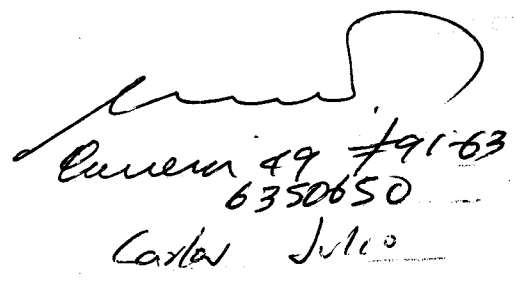 Carrera 49 #91-63
6350650
Carlos Julio